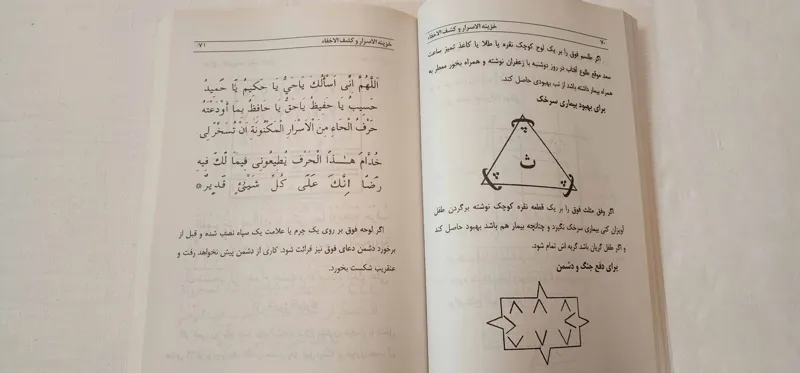 ۷۰
خزینه الاسرار و کشف الاخفاء
اگر طلسم فوق را بر یک لوح کوچک نقره یا طلا یا کاغذ تمیز ساعت
سعد موقع طلوع آفتاب در روز دوشنبه با زعفران نوشته و همراه بخور معطر به
همراه بیمار داشته باشد از تب بهبودی حاصل کند.
برای بهبود بیماری سرخک
ث
اگر وفق مثلث فوق را بر یک قطعه نقره کوچک نوشته برگردن طفل
آویزان کنی بیماری سرخک نگیرد و چنانچه بیمار هم باشد بهبود حاصل کند
و اگر طفل گریان باشد گریه اش تمام شود.
برای دفع جنگ و دشمن
خزینه الاسرار و کشف الاخفاء
۷۱
اَللّهُمَّ اِنّی اَسْأَلُکَ یٰاحَیُّ یٰا حَکیمُ یٰا حَمیدُ
حَسیبُ یٰا حَفیظُ یٰاحَقُّ یٰا حٰافِظُ بِمٰا أَوْدَعْتَهُ
حَرْفُ الْحٰاءِ مِنَ الْاَسْرٰارِ الْمَکْنُونَةِ اَنْ تُسَخِّرَ لی
خُدّٰامَ هٰذَا الْحَرْفِ یُطیعُونی فیمٰا لَکَ فیهِ
رِضًا اِنَّکَ عَلٰی کُلِّ شَیْئٍ قَدیرٌ*
اگر لوحه فوق بر روی یک جرم یا علامت یک سپاه نصب شده و قبل از
برخورد دشمن دعای فوق نیز قرائت شود. کاری از دشمن پیش نخواهد رفت و
عنقریب شکست بخورد.